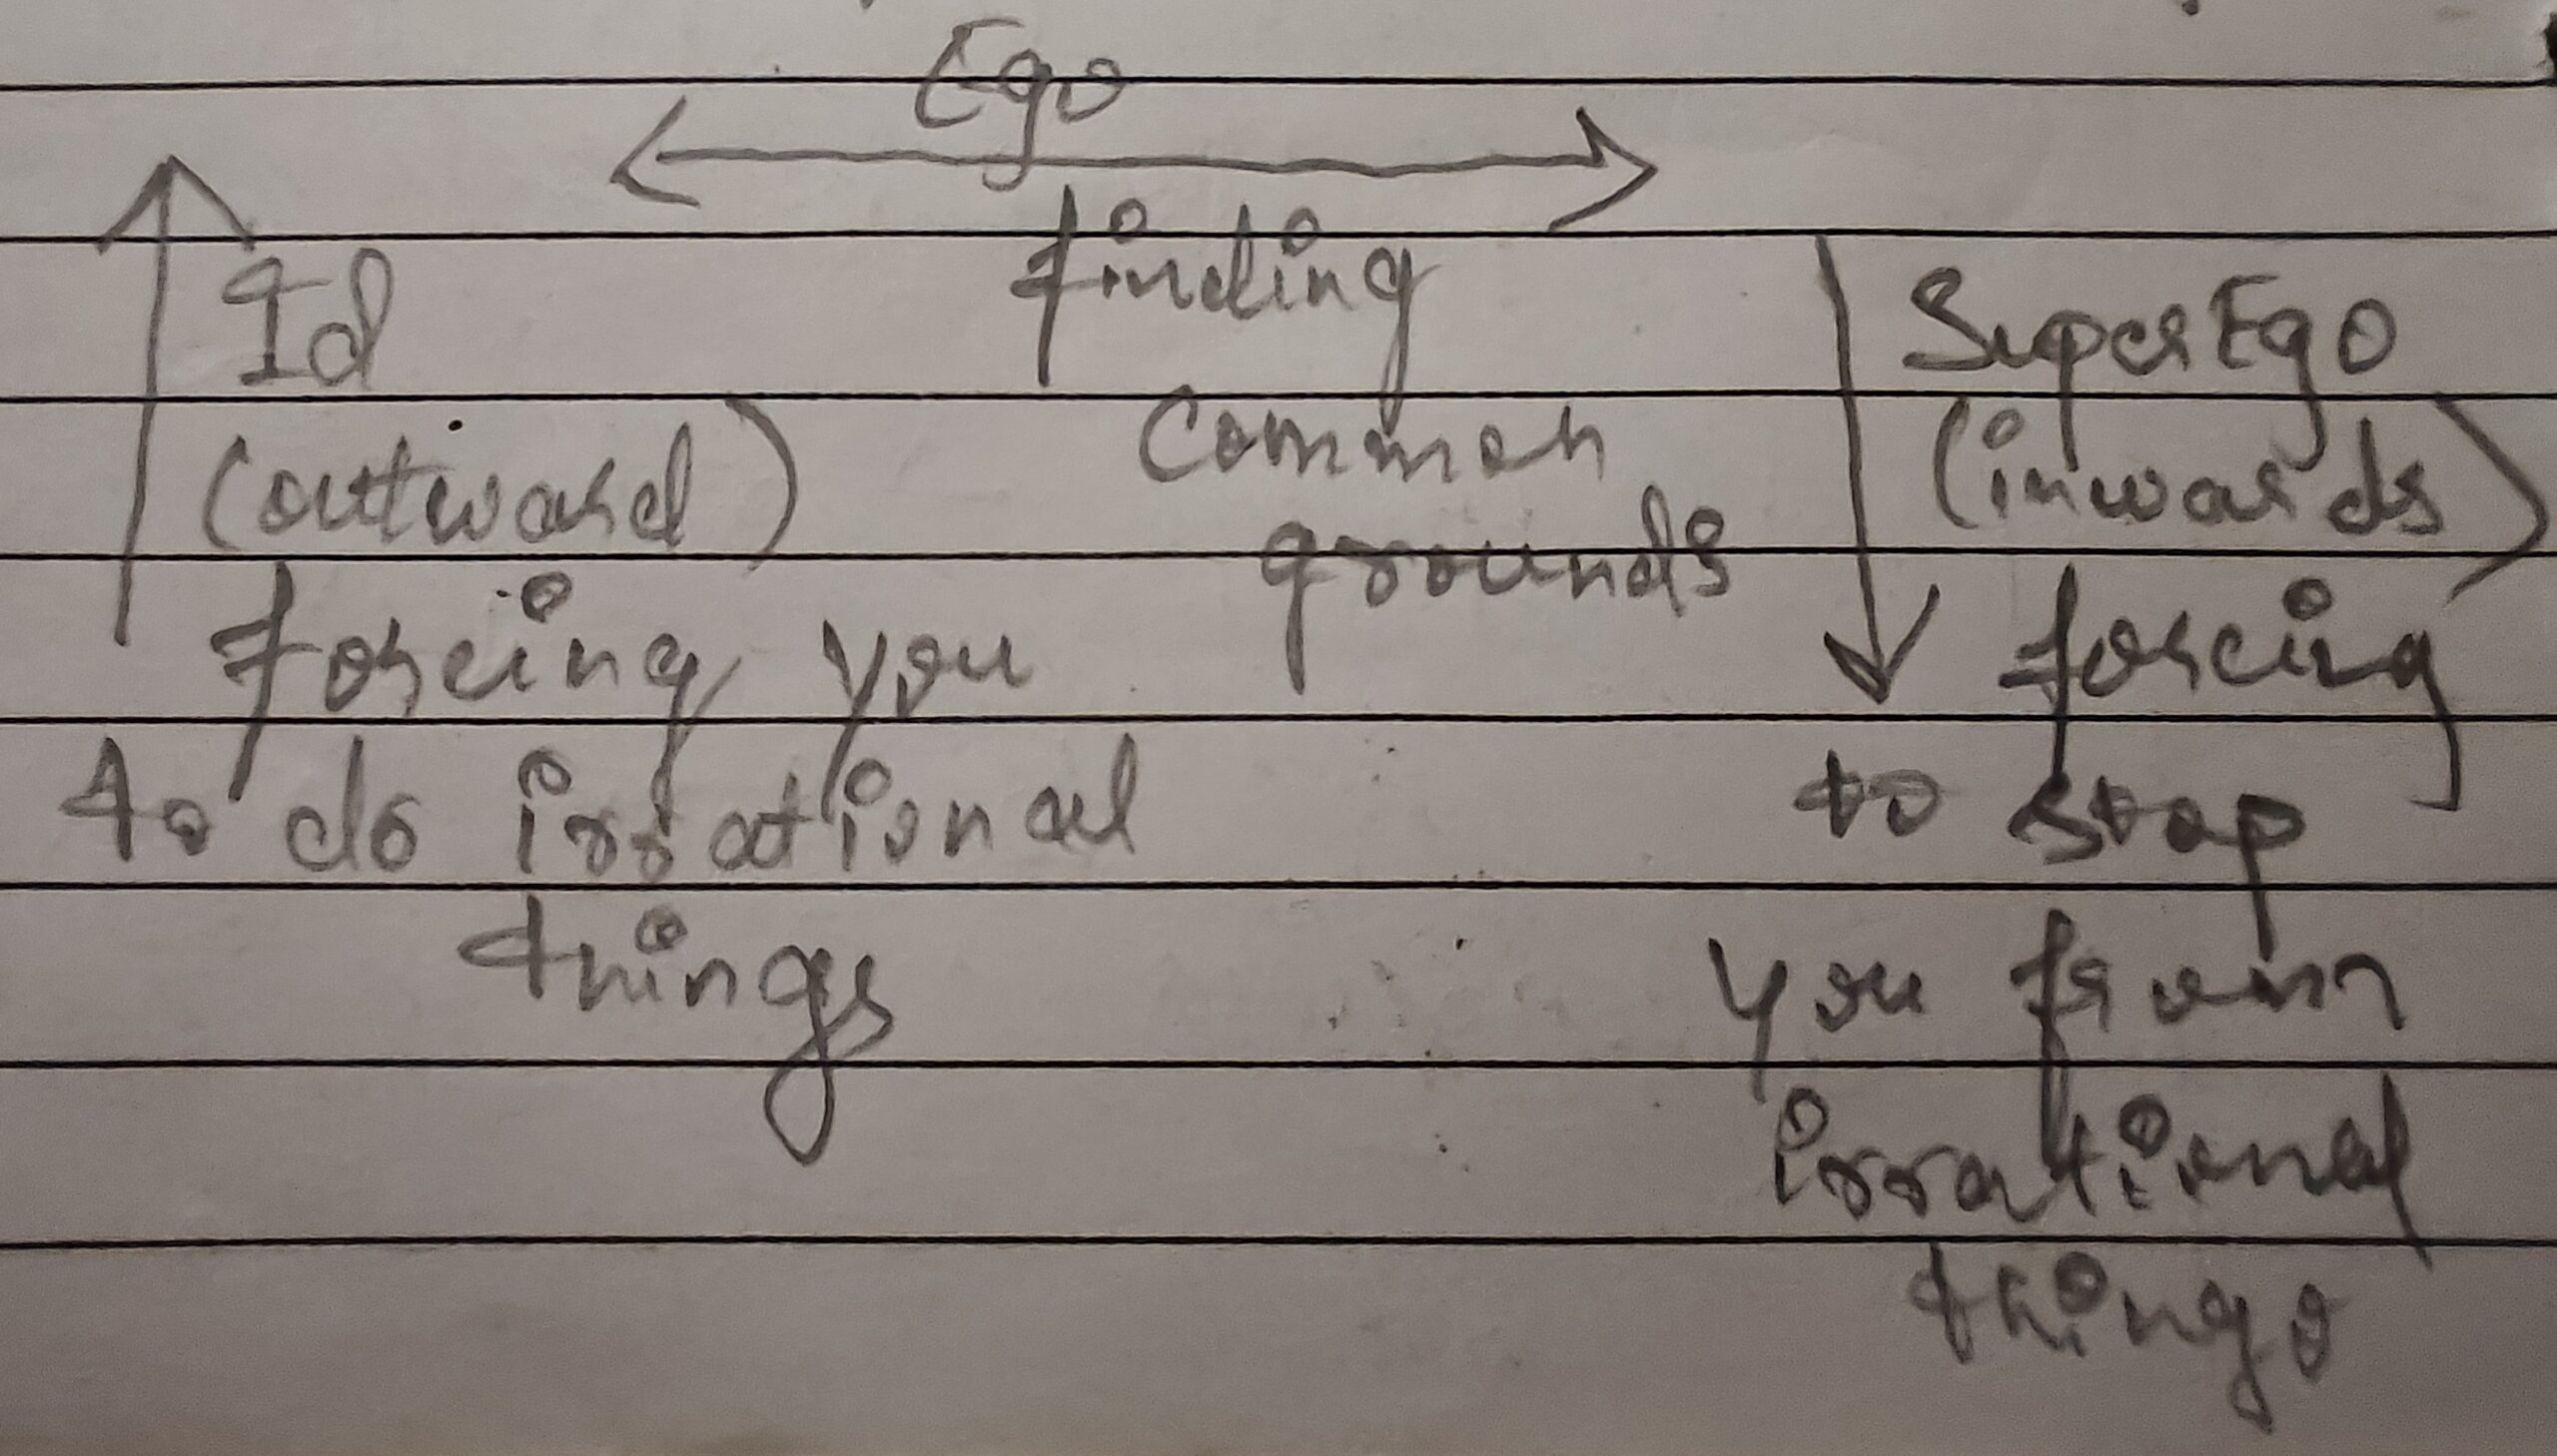 Ego
finding
common
grounds
Id
(outward)
forcing you
to do irrational
things
SuperEgo
(inwards)
forcing
to stop
you from
irrational
things